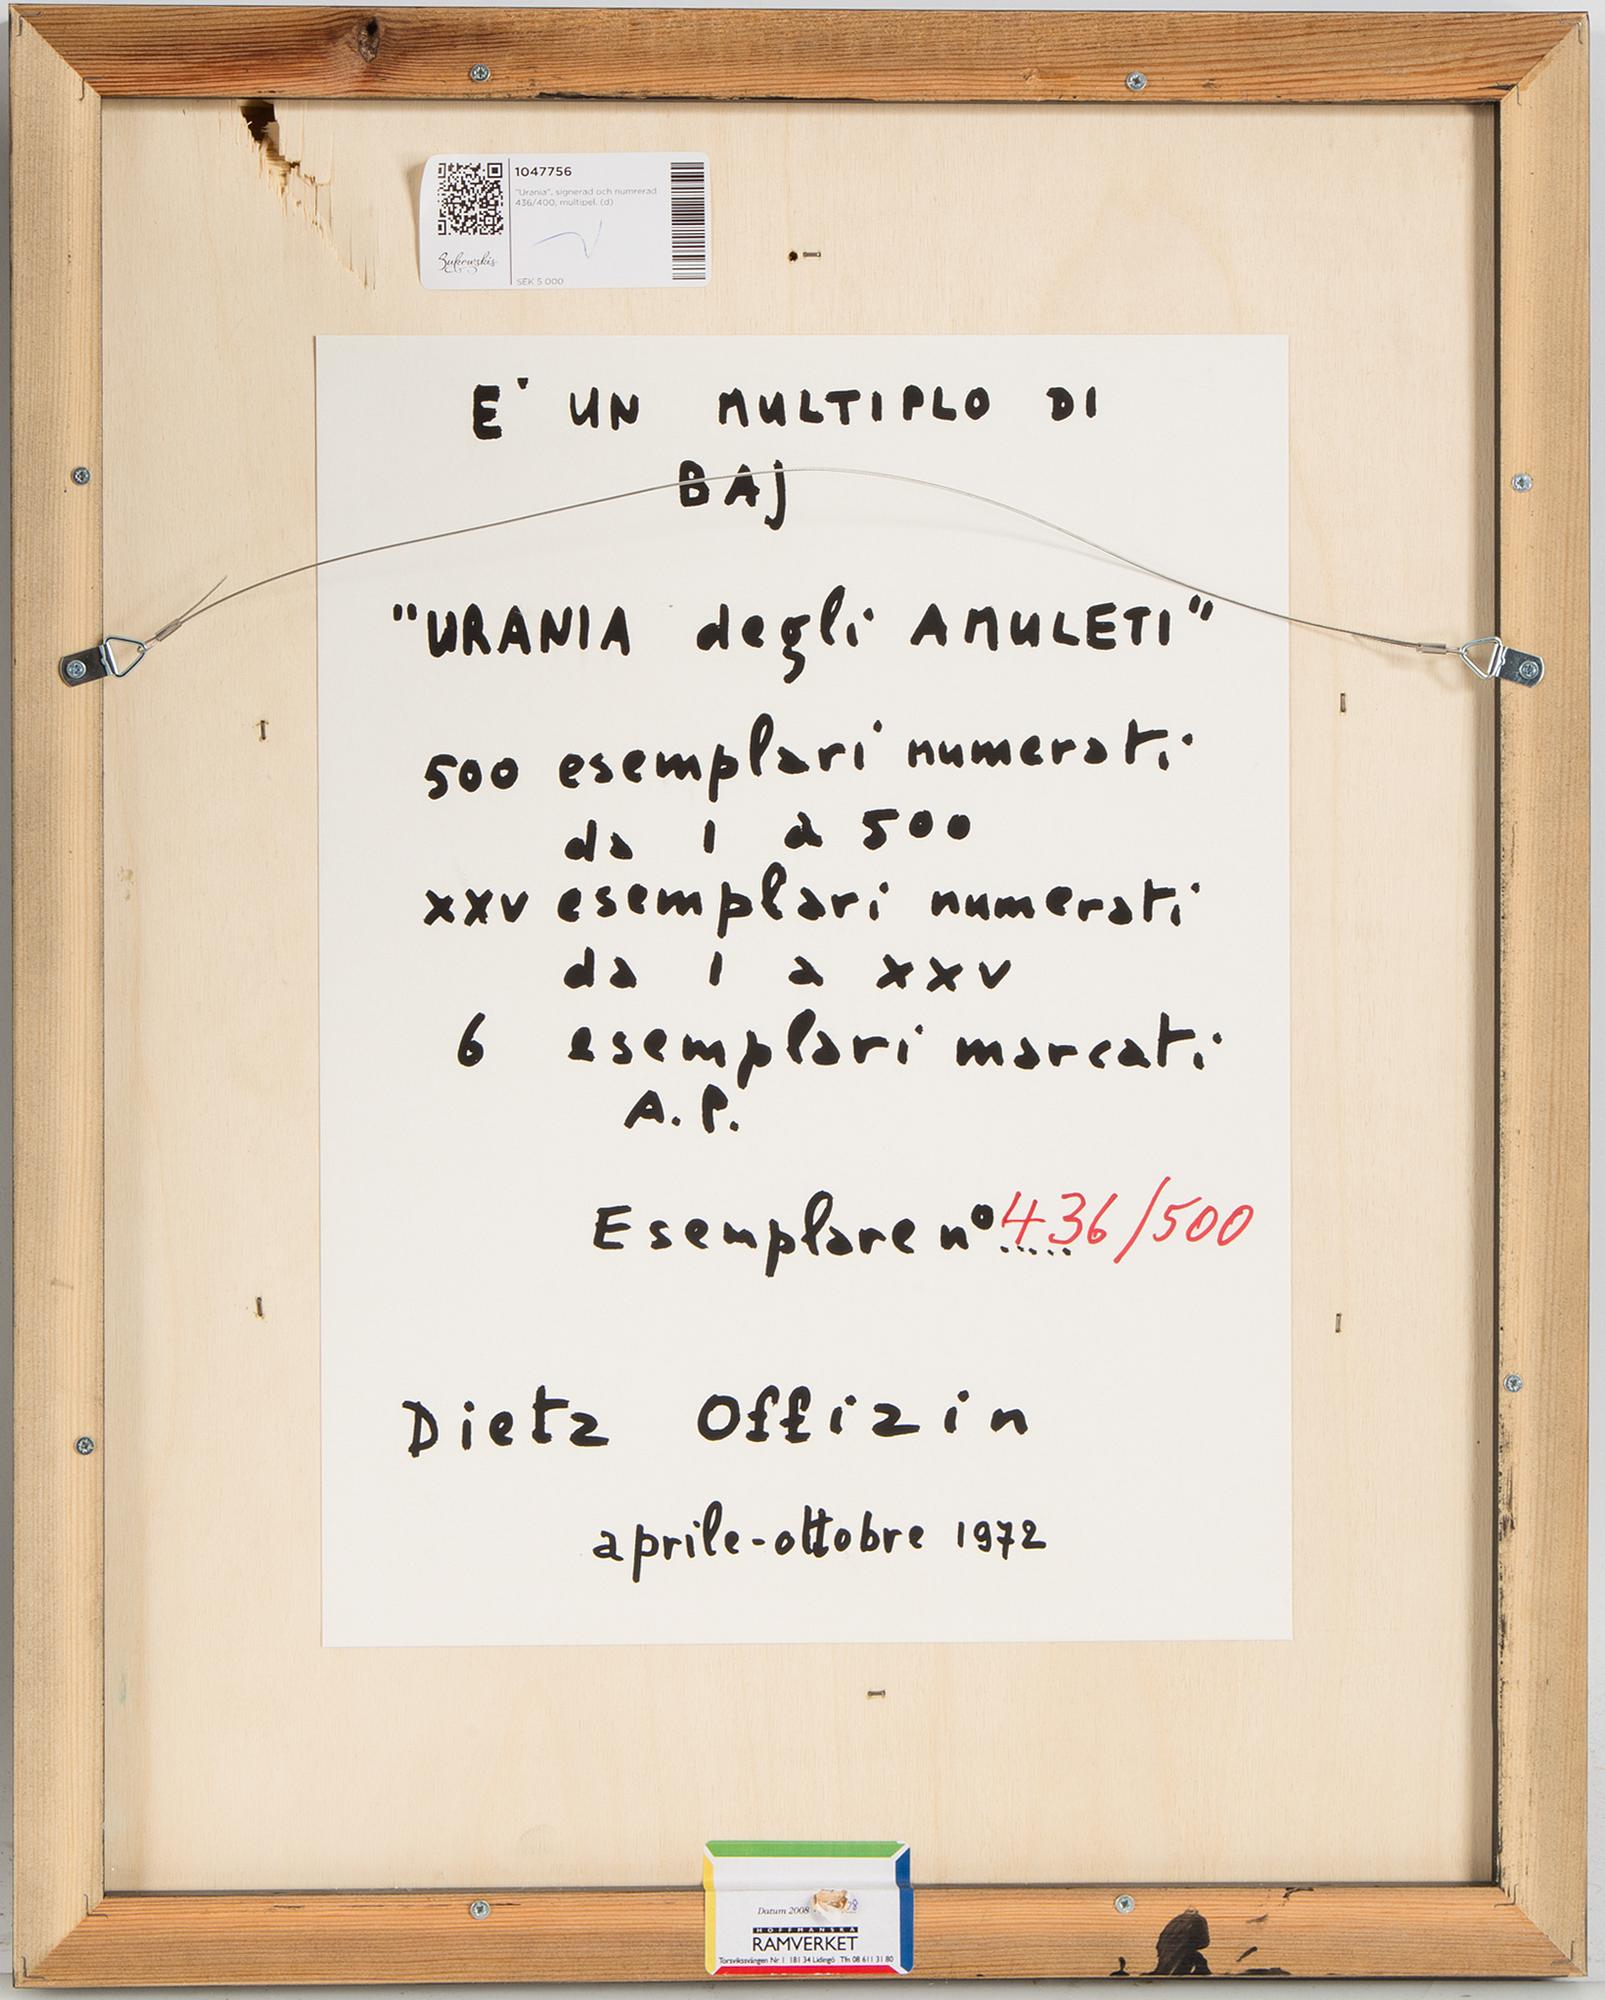 1047756
"Urania", signerad och numrerad
436/400, multipel. (d)
Bukowskis
SEK 5 000
E' UN MULTIPLO DI
BAJ
"URANIA degli AMULETI"
500 esemplari numerati
da 1 a 500
XXV esemplari numerati
da 1 a XXV
6 esemplari marcati
A.P.
Esemplare nº 436/500
Dietz Offizin
aprile-ottobre 1972
Datum 2008
HOFFMANSKA
RAMVERKET
Torsviksvängen Nr 1 181 34 Lidingö Tfn 08 611 31 80